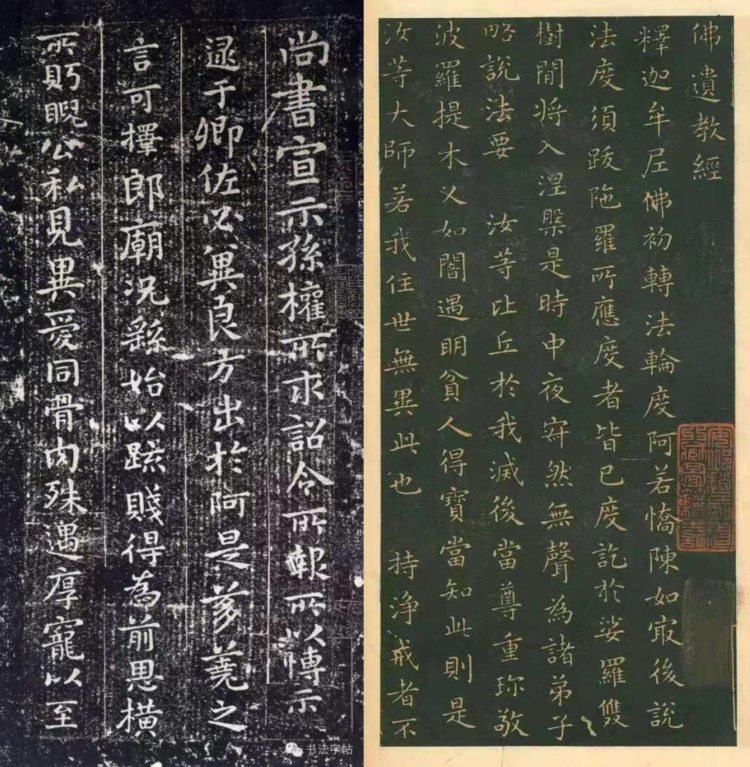 尚書宣示孫權所求詔令所報所以博示
逮于卿佐必冀良方出於阿是芻蕘之
言可擇郎廟況繇始以疏賤得為前恩橫
所盻睨公私見異愛同骨肉殊遇厚寵以至
书法字帖
佛遺教經
釋迦牟尼佛初轉法輪度阿若憍陳如寂後說
法度須跋陁羅所應度者皆已度訖於娑羅雙
樹間將入涅槃是時中夜寂然無聲為諸弟子
略說法要 汝等比丘於我滅後當尊重珍敬
波羅提木叉如闇遇明貧人得寶當知此則是
汝等大師若我住世無異此也 持淨戒者不